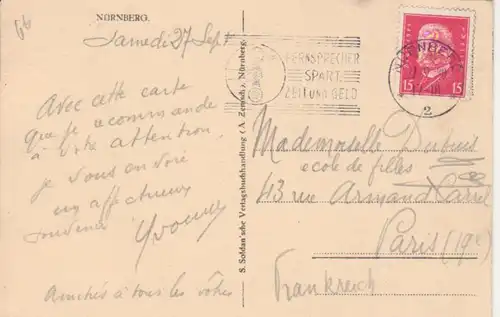 NÜRNBERG.
Samedi 27 Sept
Avec cette carte
que je recommande
à votre attention
je vous envoie
un affectueux
souvenir Yvonne
Amitiés à tous les vôtres
S. Soldan'sche Verlagsbuchhandlung (A. Zemsch), Nürnberg.
FERNSPRECHER
SPART
ZEIT UND GELD
NÜRNBERG
2
15 15
Mademoiselle Dubuis
école de filles
43 rue Armand Carrel
Paris (19e)
Frankreich